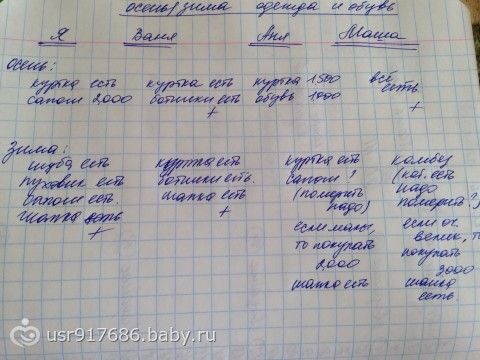 осень/зима одежда и обувь
Я Ваня Аня Маша
осень:
куртка есть куртка есть куртка 1500 всё
сапоги 2,000 ботинки есть обувь 1000 есть
+ +
зима:
шуба есть куртка есть куртка есть комбез
пуховик есть ботинки есть. сапоги ? (кот. есть
сапоги есть. шапка есть (померить надо
шапка есть + надо) померить?)
+ если малы, если оч.
то покупать велик, то
2,000 покупать
шапка есть 3000
шапка
есть.
usr917686.baby.ru